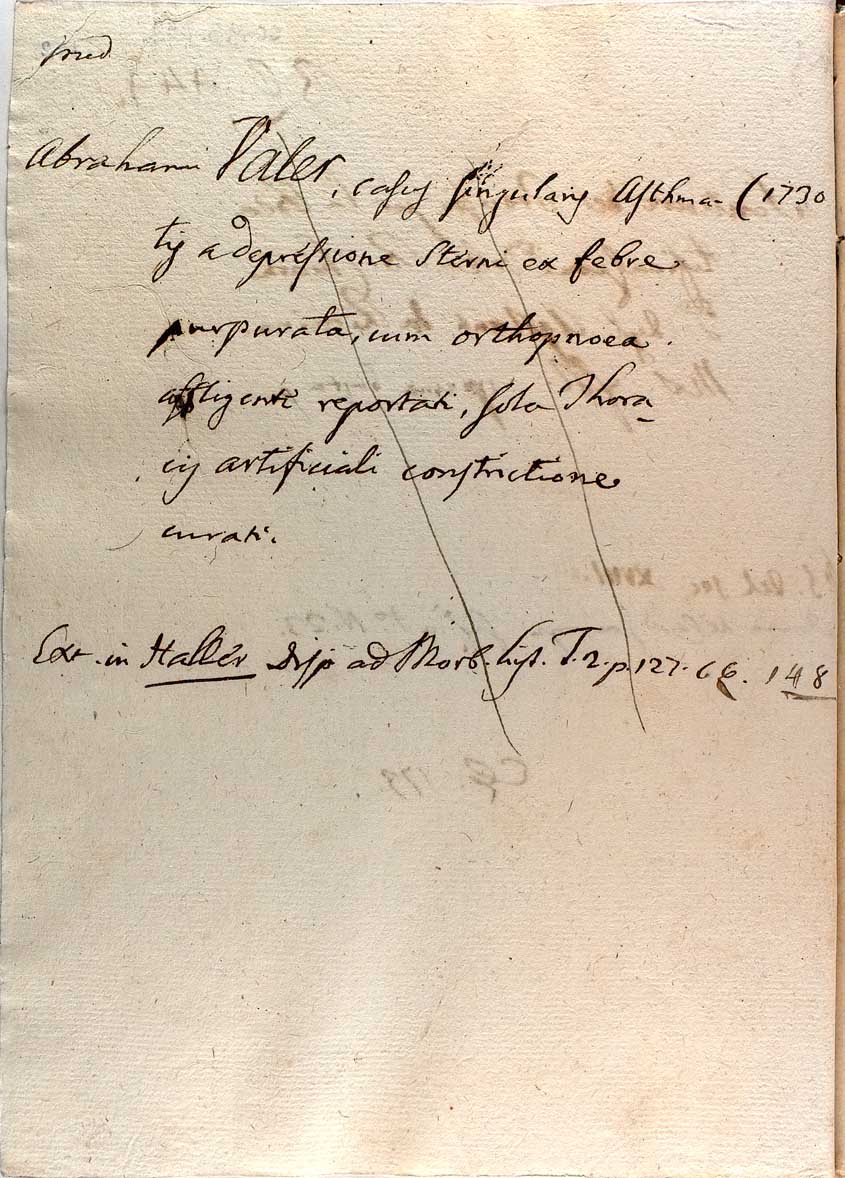 med
Abrahami Vater, casus singularis Asthma- (1730
tis a depressione Sterni ex febre
purpurata, cum orthopnoea
affligenti reportati, sola Thora-
cis artificiali constrictione
curati.
Ext. in Haller Disp ad Morb. hist. T. 2. p. 127. 148